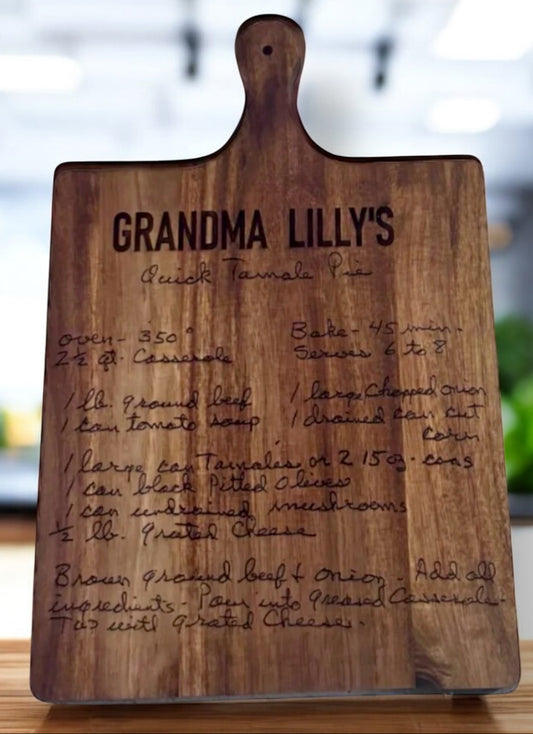 GRANDMA LILLY'S
Quick Tamale Pie
oven - 350°
2½ qt. Casserole
Bake - 45 min.
Serves 6 to 8
1 lb. ground beef
1 can tomato soup
1 large Chopped onion
1 drained can cut
corn
1 large can Tamales or 2 15oz. cans
1 can black Pitted Olives
1 can undrained mushrooms
½ lb. Grated Cheese
Brown ground beef & onion - Add all
ingredients - Pour into Greased Casserole -
Top with grated Cheese.